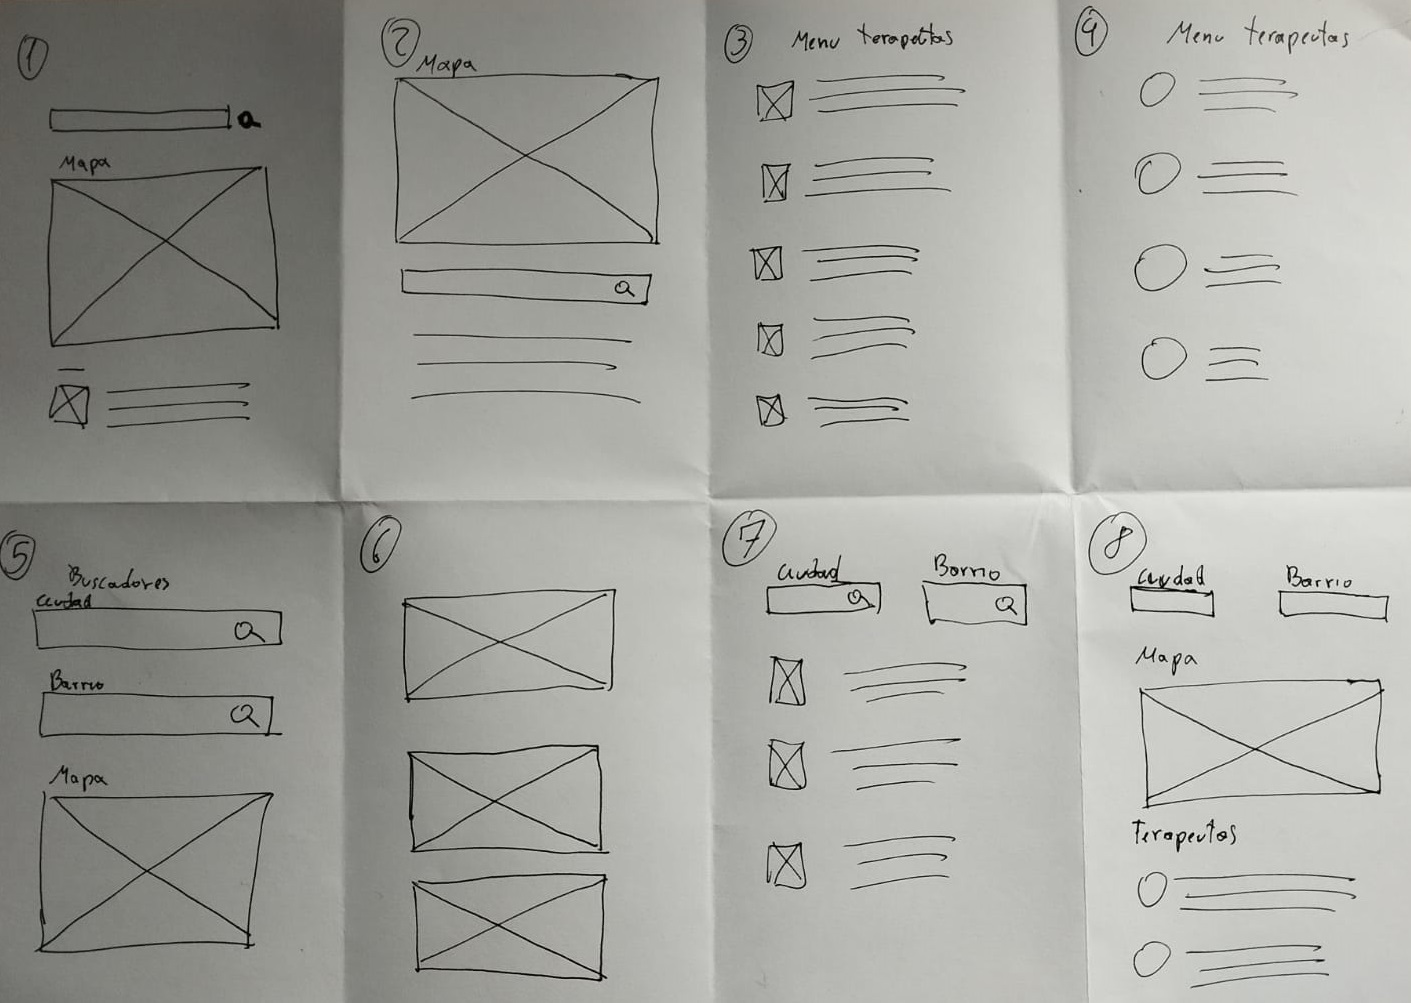 1
Mapa
2
Mapa
3 Menu terapeutas
4 Menu terapeutas
5
Buscadores
Ciudad
Barrio
Mapa
6
7
Ciudad Barrio
8
Ciudad Barrio
Mapa
Terapeutas